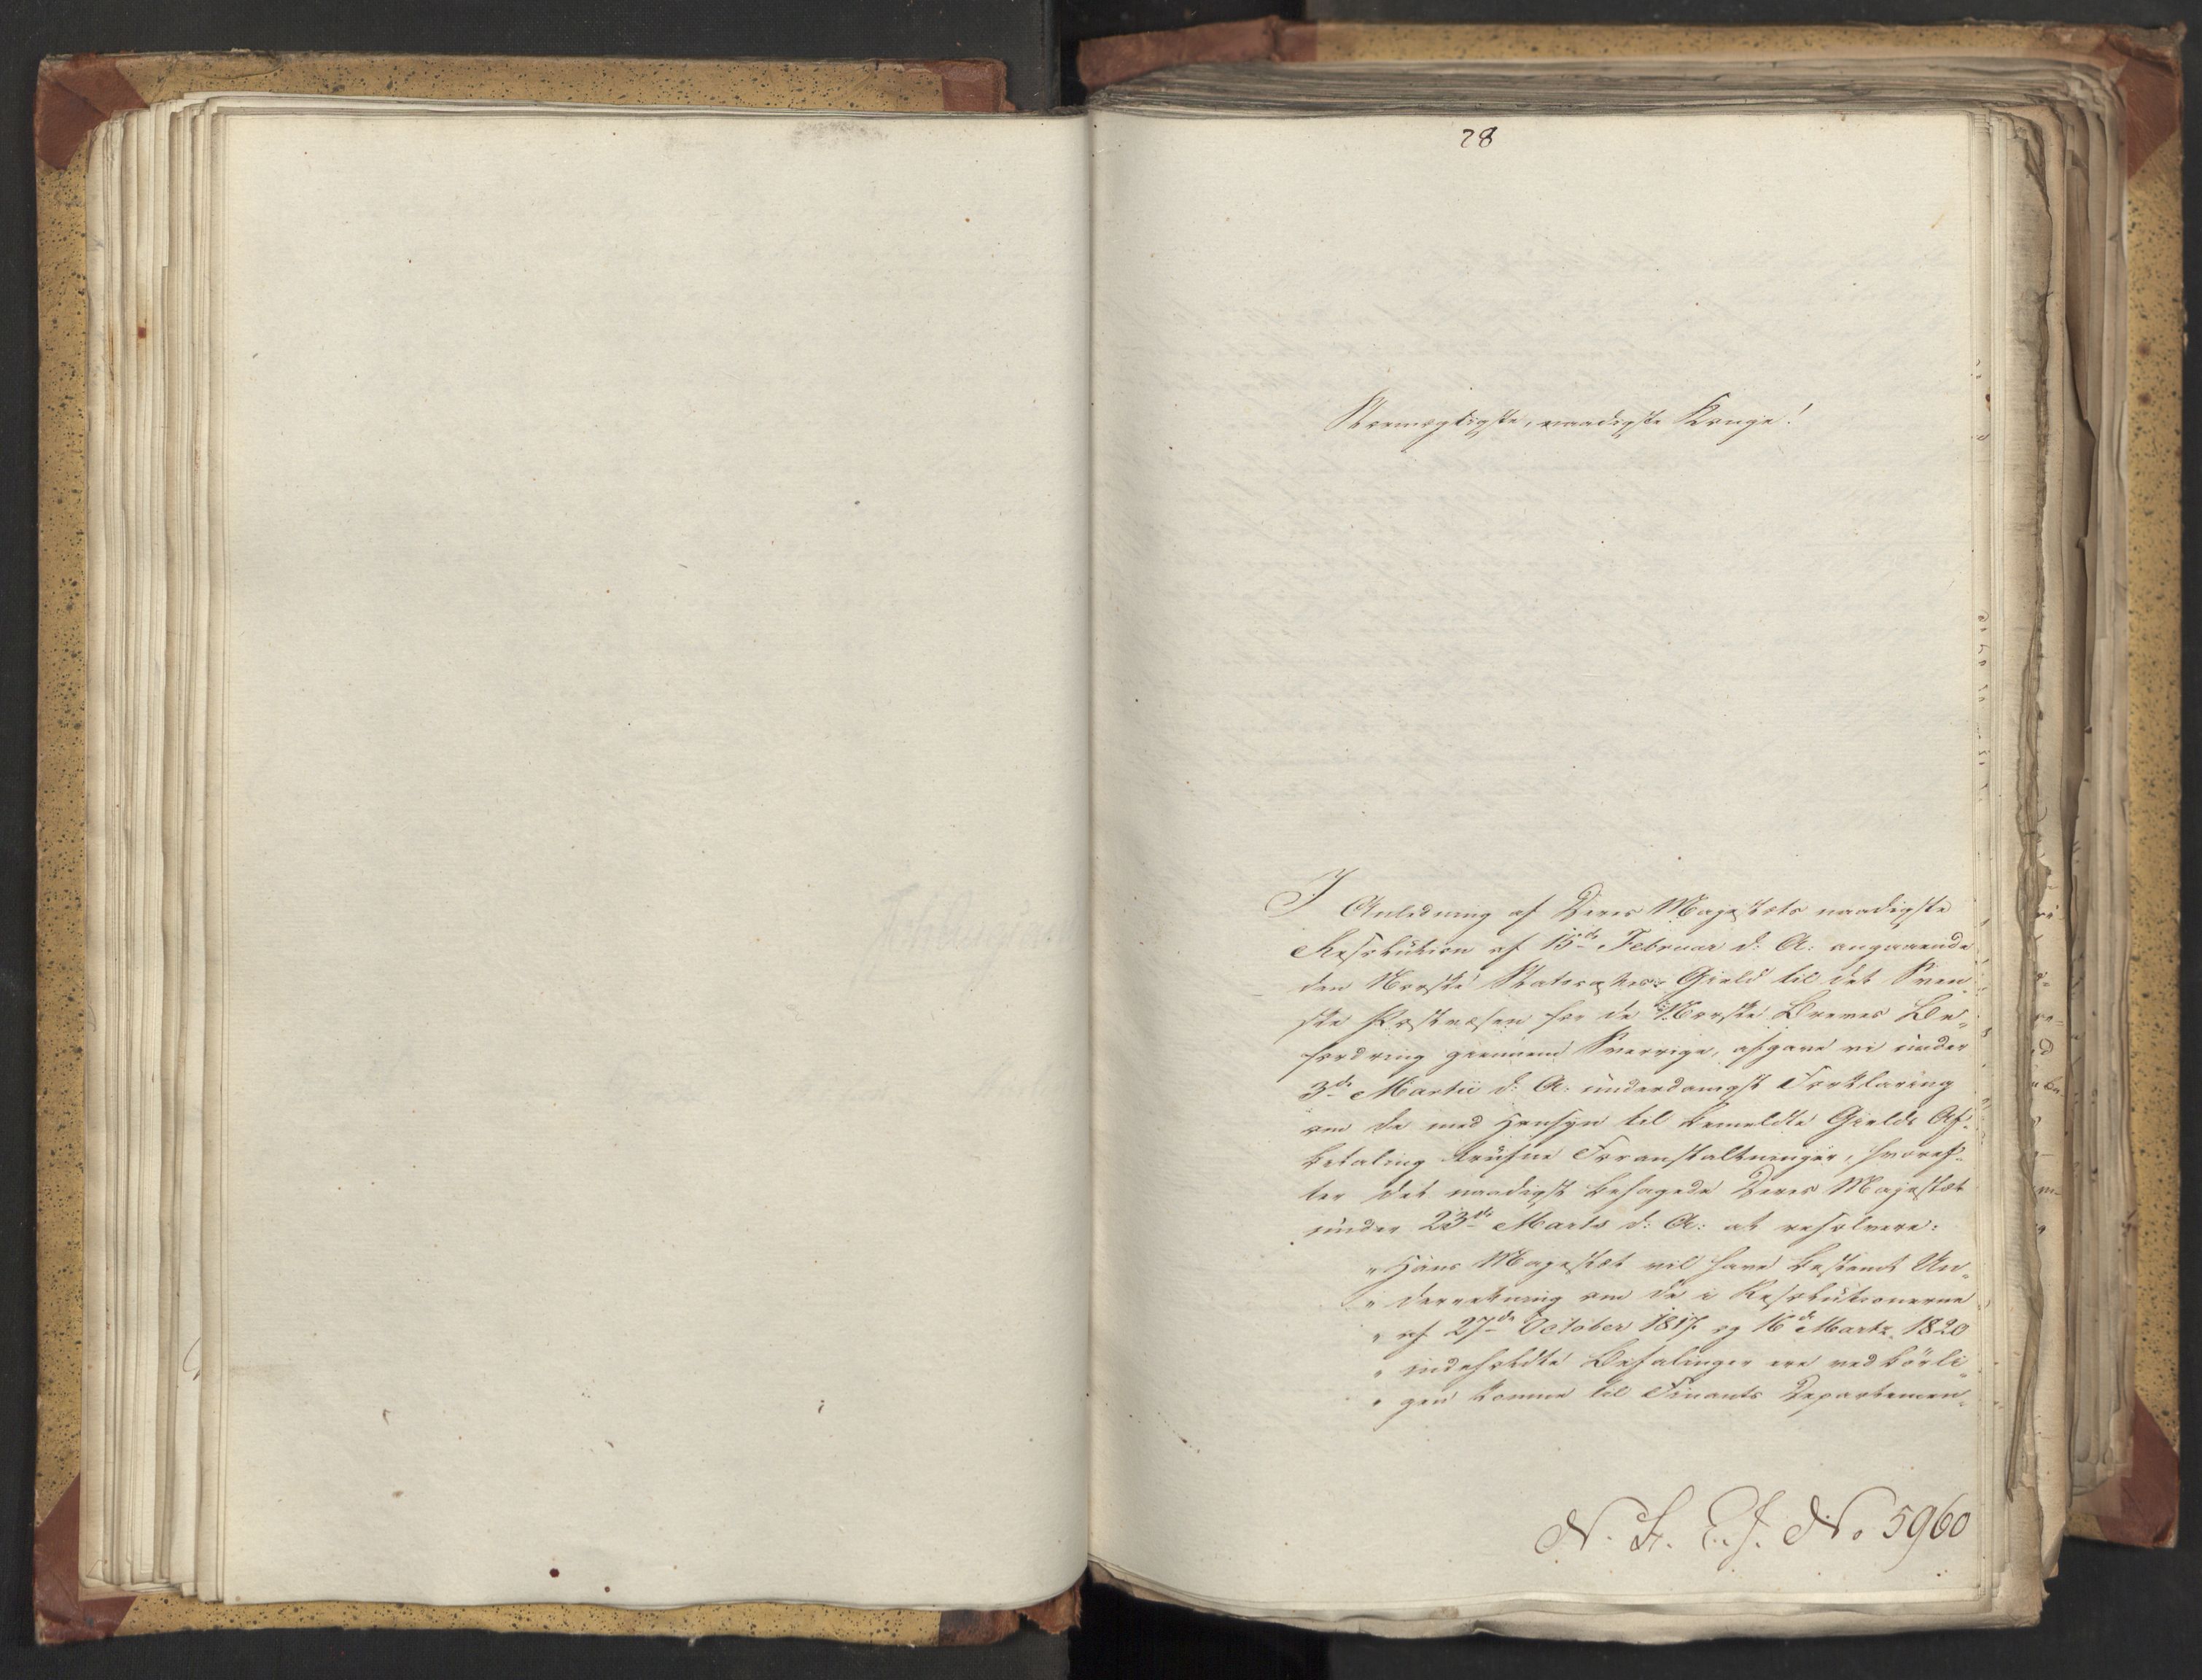 28
Stormægtigste, naadigste Konge!
I Anledning af Deres Majestæts naadigste
Resolution af 15de Februar d: A: angaaende
den Norske Statscasses Gield til det Sven„
ske Postvæsen for de Norske Breves Be„
fordring giennem Sverrige, afgave vi under
3de Martii d: A: underdanigst Forklaring
om de med Hensyn til bemeldte Gields Af„
betaling trufne Foranstaltninger, hvoref„
ter det naadigst behagede Deres Majestæt
under 23de Marts d: A: at resolvere:
„Hans Majestæt vil have bestemt Un„
„derretning om de i Resolutionerne
„af 27de October 1817 og 16de Marts 1820
„indeholdte Befalinger ere vedbörli„
„gen komne til Finants Departemen„
N. F. C. J. No 5960